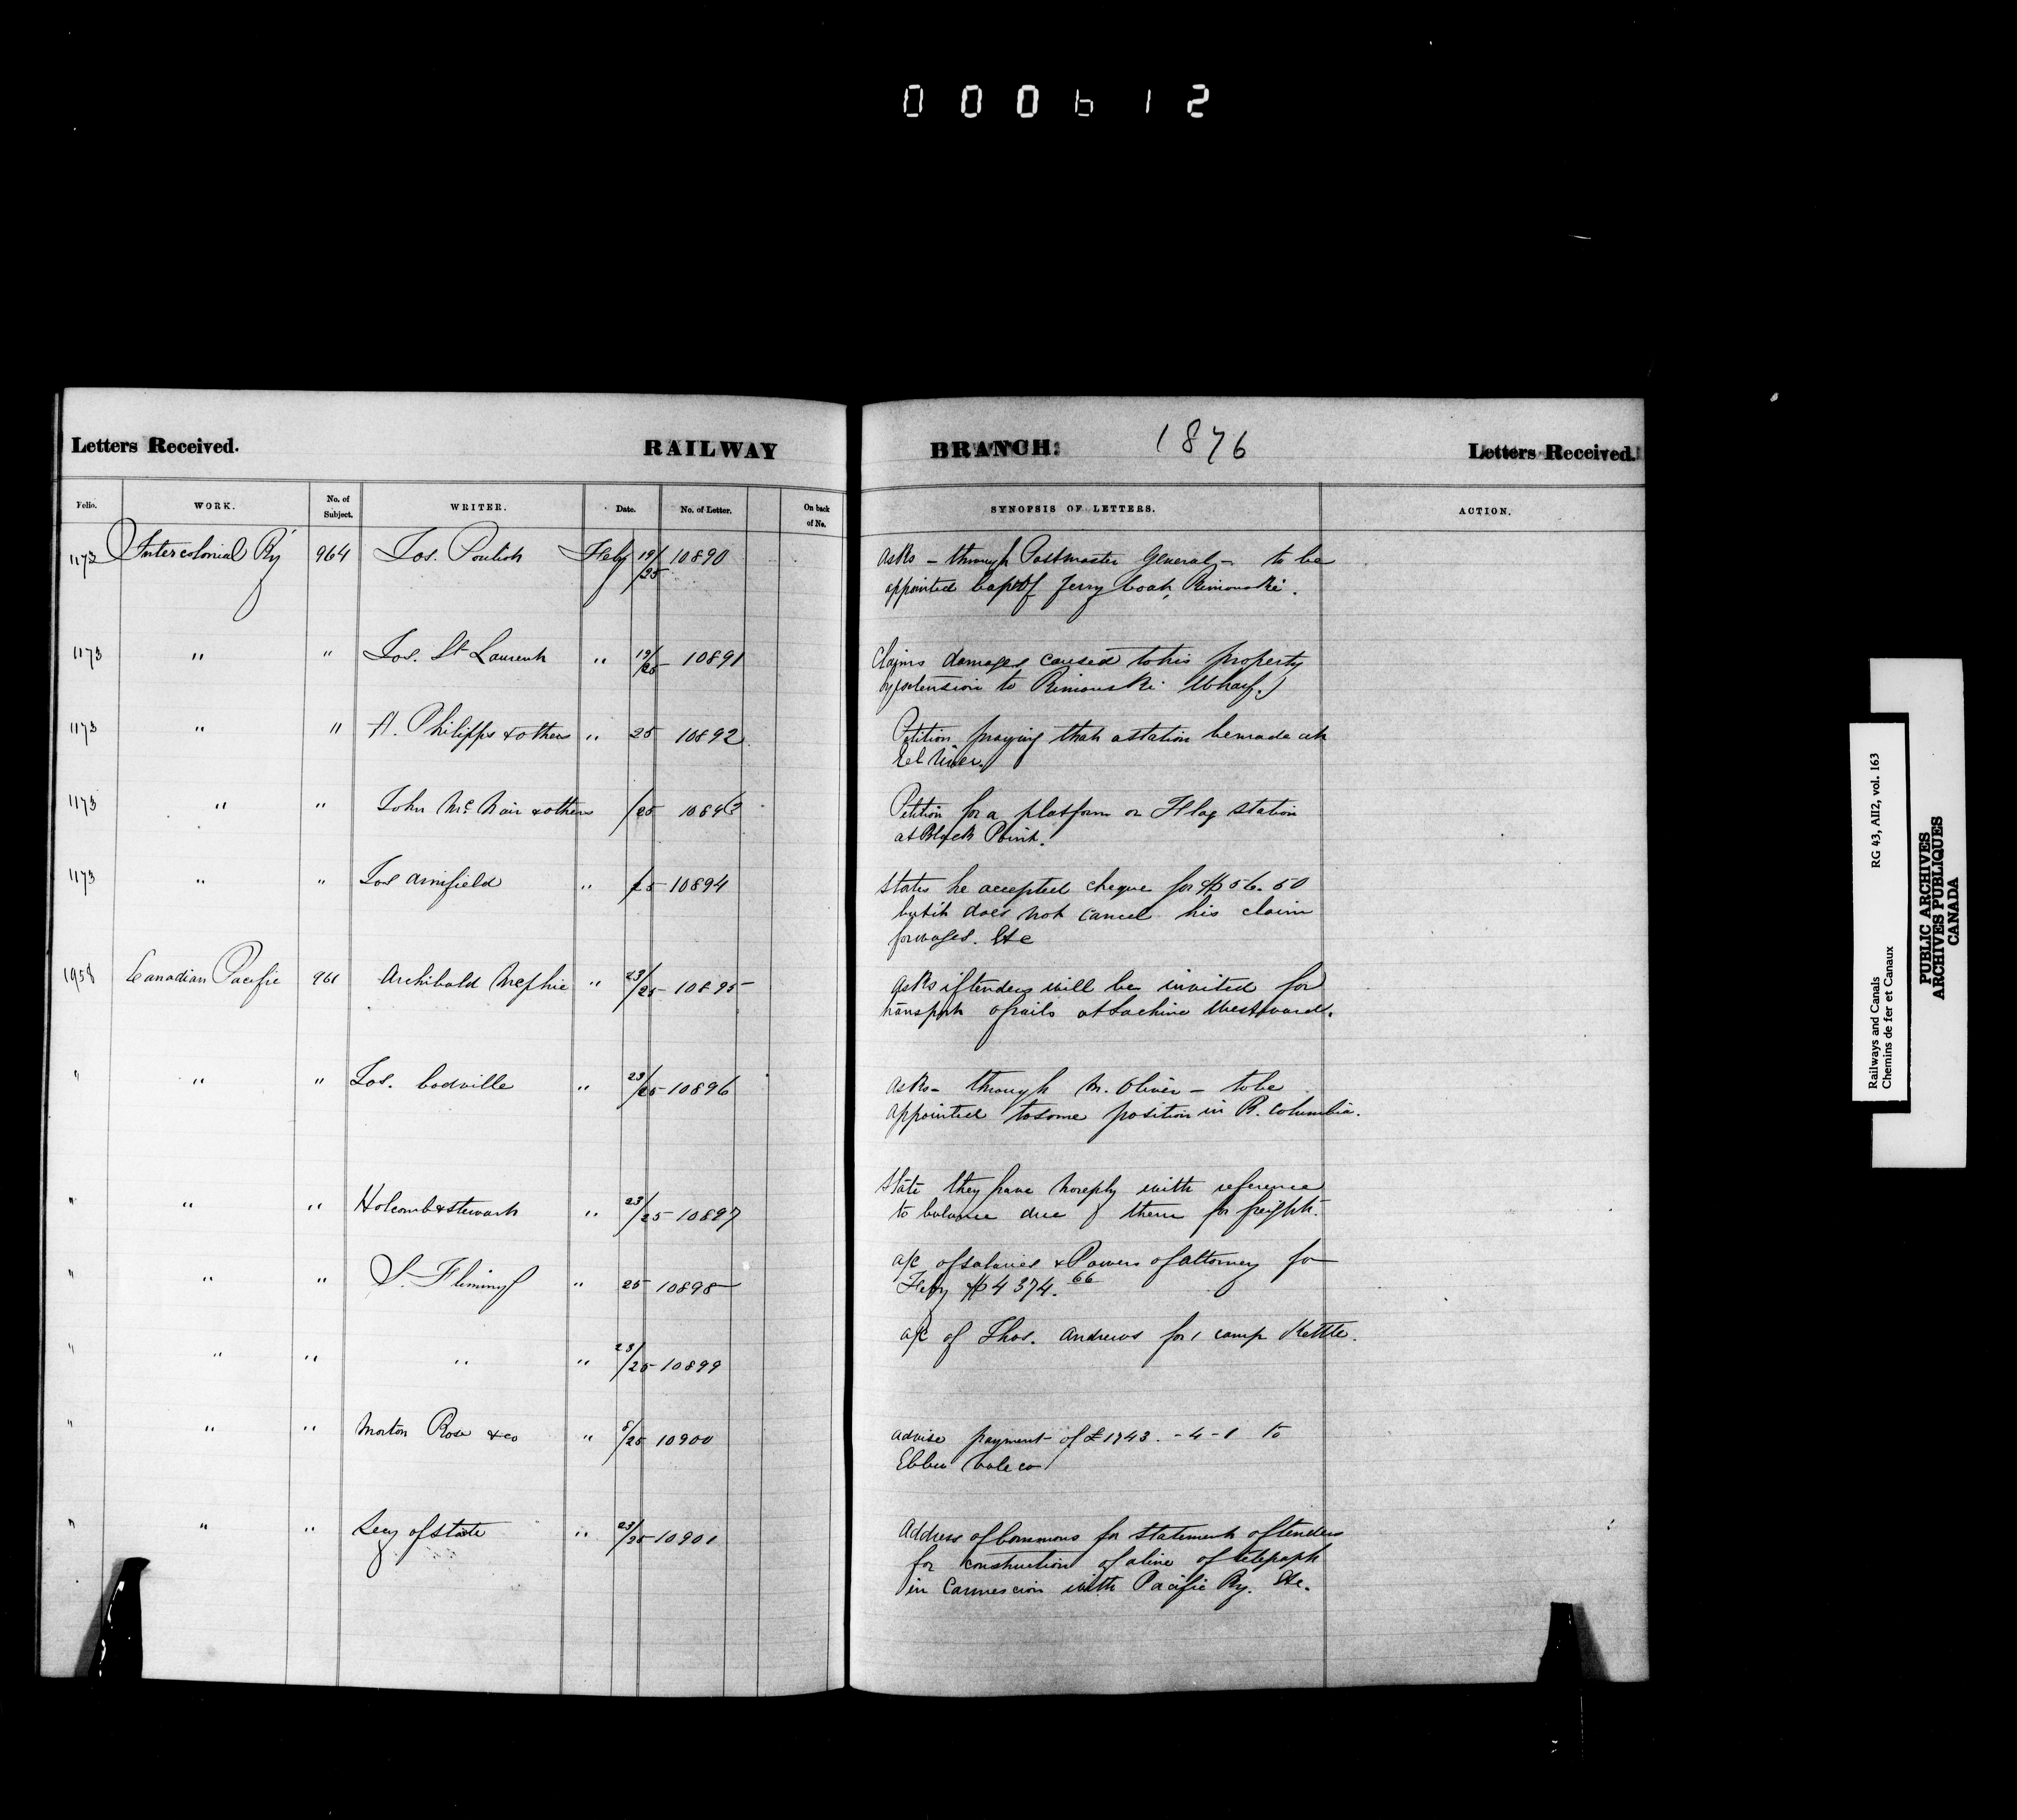 000612
Letters Received. RAILWAY BRANCH: 1876 Letters Received.
Folio. WORK. No. of Subject. WRITER. Date. No. of Letter. On back of No. SYNOPSIS OF LETTERS. ACTION.
1173 Intercolonial Ry 964 Jos. Feby 19/25 10890 asks - through Postmaster General - to be
appointed Capt of ferry boat, Rimouski.
1173 " " Jos. St Laurent " 19/25 10891 Claims damages caused to his property
by extension to Rimouski Wharf.
1173 " " A. Philipps & others " 25 10892 Petition praying that a station be made at
Eel River.
1173 " " John McNair & others /25 10893 Petition for a platform or Flag station
at Black Point.
1173 " " Jos Armfield " 25 10894 States he accepted cheque for $56.50
but it does not cancel his claim
for wages. Etc
1958 Canadian Pacific 961 Archibald McPhie " 23/25 10895 asks if tenders will be invited for
transport of rails at Lachine Westward.
" " " Jos. Codville " 23/25 10896 asks - through M. Oliver - to be
appointed to some position in B. Columbia.
" " " Holcomb & Stewart " 23/25 10897 State they have no reply with reference
to balance due them for freight.
" " " S. Fleming " 25 10898 a/c of salaries & Powers of Attorney for
Feby $4374.66
" " " " " 23/25 10899 a/c of Thos. Andrews for 1 camp Kettle.
" " " Morton Rose & co " 8/25 10900 advise payment of £1743.-4-1 to
Ebbw Vale co
" " " Secy of State " 23/25 10901 Address of Commons for Statement of tenders
for construction of a line of telegraph
in Connexion with Pacific Ry. Etc.
Railways and Canals RG 43, AII2, vol. 163
Chemins de fer et Canaux
PUBLIC ARCHIVES
ARCHIVES PUBLIQUES
CANADA